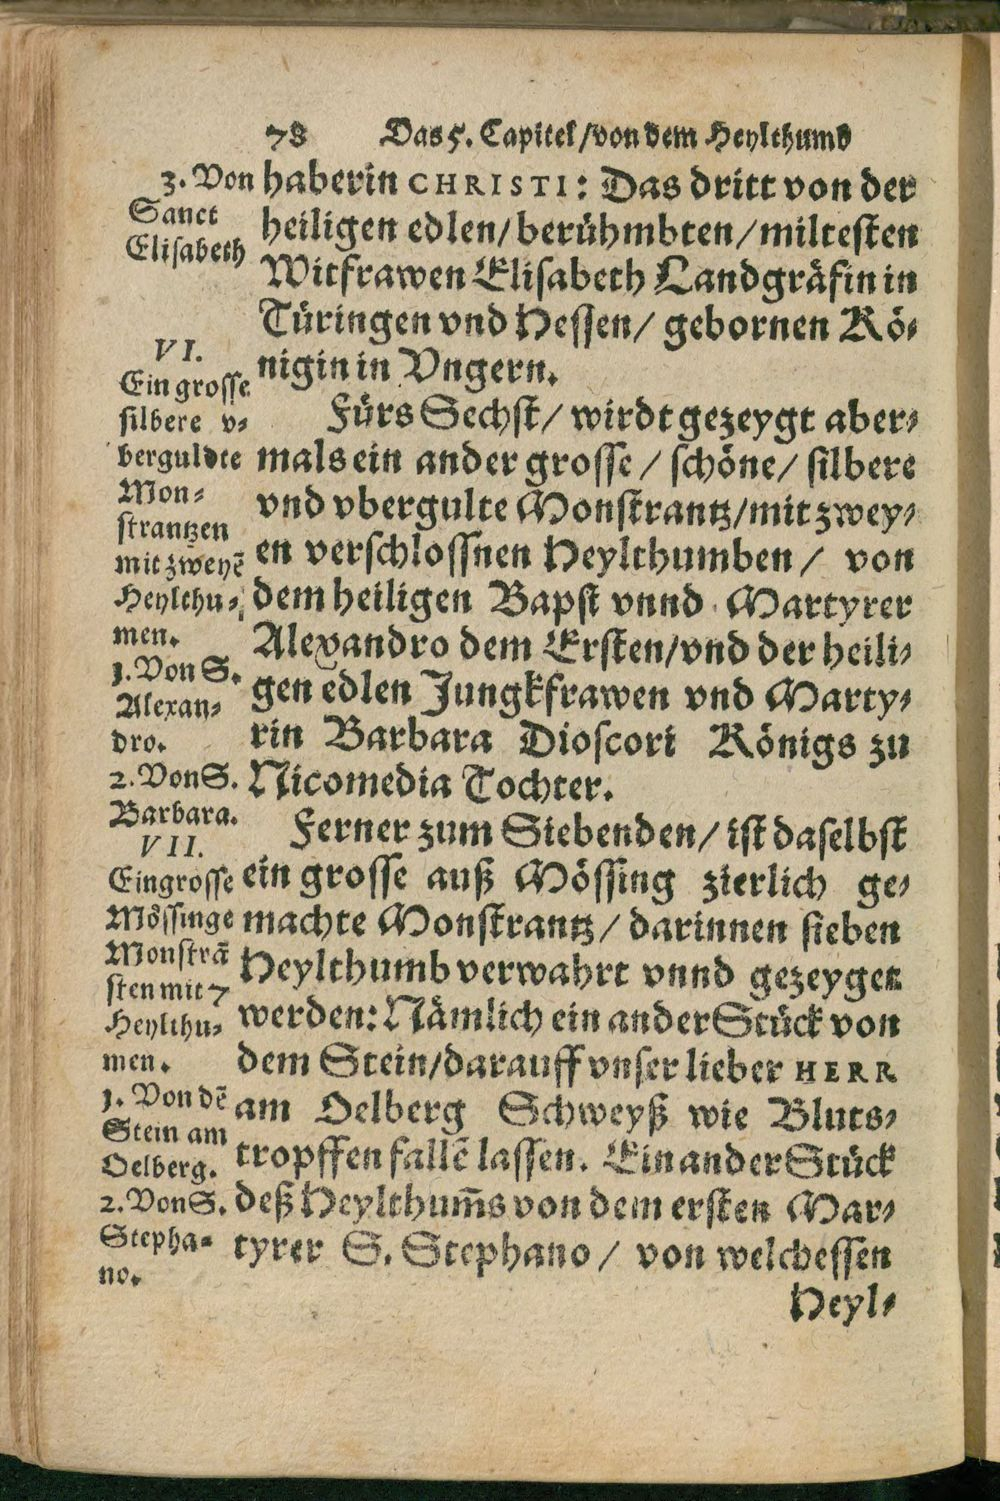 78 Das 5. Capitel / von dem Heylthumb
haberin CHRISTI: Das dritt von der
heiligen edlen / berühmbten / miltesten
Witfrawen Elisabeth Landgräfin in
Türingen vnd Hessen / gebornen Kö-
nigin in Vngern.
Fürs Sechst / wirdt gezeygt aber-
mals ein ander grosse / schöne / silbere
vnd vbergulte Monstrantz / mit zwey-
en verschlossnen Heylthumben / von
dem heiligen Bapst vnnd Martyrer
Alexandro dem Ersten / vnd der heili-
gen edlen Jungkfrawen vnd Marty-
rin Barbara Dioscori Königs zu
Nicomedia Tochter.
Ferner zum Siebenden / ist daselbst
ein grosse auß Mössing zierlich ge-
machte Monstrantz / darinnen sieben
Heylthumb verwahrt vnnd gezeyget
werden: Nämlich ein ander Stück von
dem Stein / darauff vnser lieber HERR
am Oelberg Schweyß wie Bluts-
tropffen fallẽ lassen. Ein ander Stück
deß Heylthum̃s von dem ersten Mar-
tyrer S. Stephano / von welchessen
Heyl-
3. Von
Sanct
Elisabeth
VI.
Ein grosse
silbere v-
berguldte
Mon-
strantzen
mit zweyẽ
Heylthu-
men.
1. Von S.
Alexan-
dro.
2. Von S.
Barbara.
VII.
Ein grosse
Mössinge
Monstrã
sten mit 7
Heylthu-
men.
1. Von dẽ
Stein am
Oelberg.
2. Von S.
Stepha-
no.